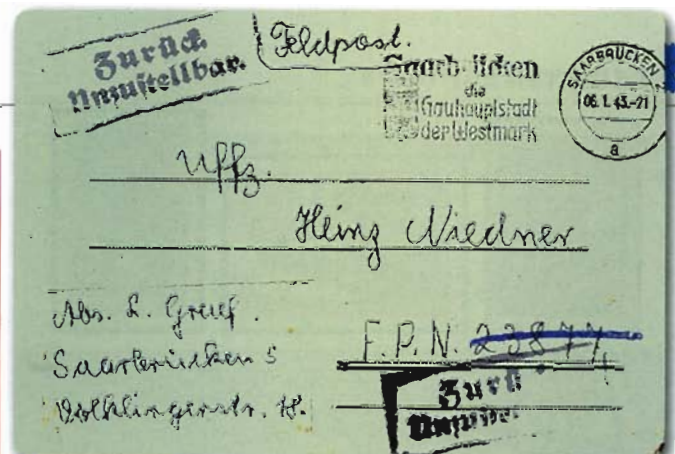 Zurück.
Unzustellbar.
Feldpost.
Saarbrücken
die
Gauhauptstadt
der Westmark
SAARBRÜCKEN 2
06.1.43.-21
a
Uffz.
Heinz Niedner
Abs. L. Greuf.
Saarbrücken 5
Völklingerstr. 18.
F.P.N. 23877
Zurü
Unzustel